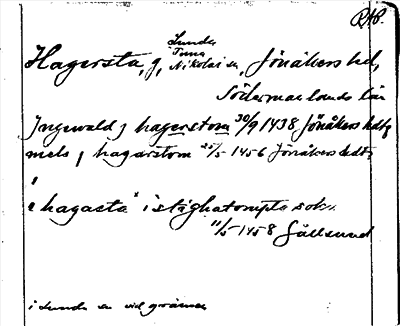 RAP.
Lunda
Tuna
Hagersta, g, Nikolai sn, Jönåkers hd,
Södermanlands län
Ingewald j hagerstom 30/9 1438 Jönåkers hdt,
mels j hagarstom 25/5 1456 Jönåkers hdt,
i
i hagasta istighatompta sokn
11/5 1458 Gällsund
i Lunda sn vid gränsen